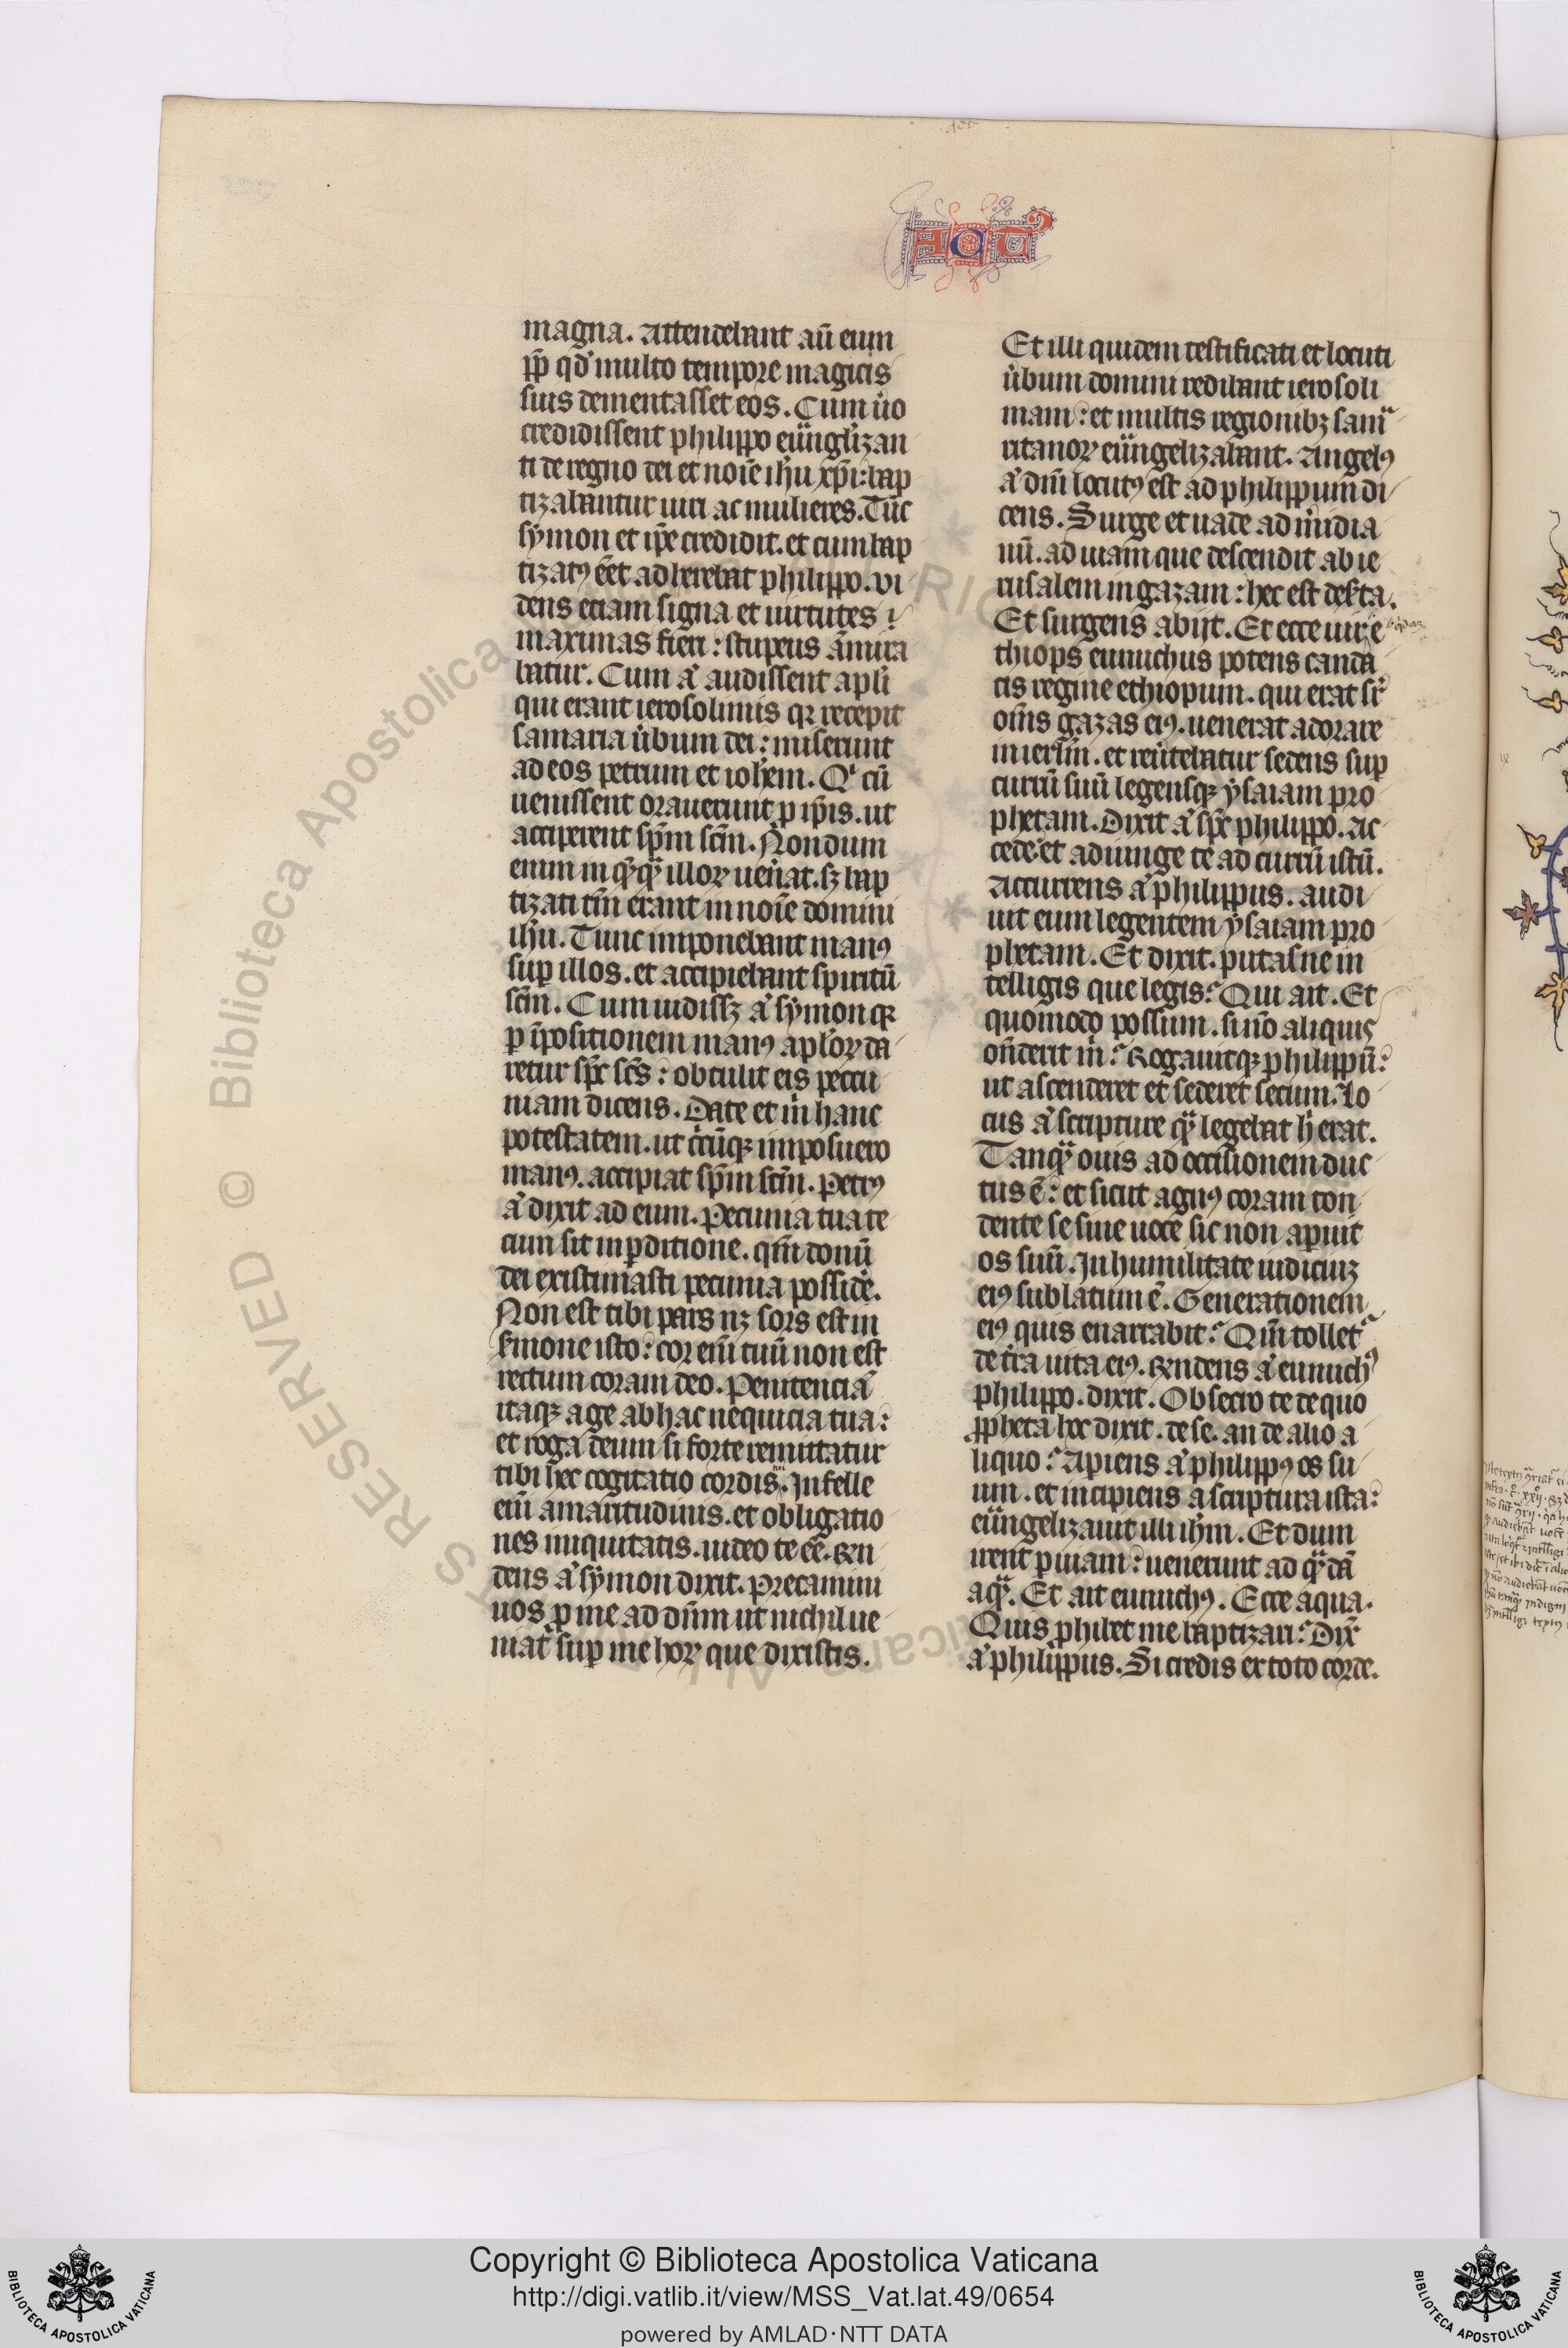 ACT᷒
magna. Attendebant aū eum
ꝓp̄ qd̓ multo tempore magicis
suis dementasset eos. Cum u̓o
credidissent philippo euͣngl̓izan
ti de regno dei et noīe ih̓u xp̄i: bap
tizabantur uiri ac mulieres. Tūc
symon et ip̄e credidit. et cum bap
tizatꝰ eēt adherebat philippo. Vi
dens etiam signa et uirtutes
maximas fieri: stupens ām̄ira
batur. Cum a̓ audissent apl̓i
qui erant ierosolimis qꝛ recepit
samaria u̓bum dei: miserunt
ad eos petrum et ioh̓em. Qͥ cū
uenissent orauerunt ꝑ ip̄is. ut
acciperent sp̄m sc̄m. Nondum
enim in qͣqͣ illoꝝ uen̓at. sꝫ bap
tizati tm̄ erant in noīe domini
ih̓u. Tunc imponebant manꝰ
suꝑ illos. et accipiebant spiritū
sc̄m. Cum uidissꝫ a̓ symon qꝛ
ꝑ īpositionem manꝰ apl̓oꝝ da
retur sp̄c sc̄s: obtulit eis peccu
niam dicens. Date et m̓ hanc
potestatem. ut cͥcūqꝫ imposuero
manꝰ. accipiat sp̄m sc̄m. Petrꝰ
a̓ dixit ad eum. Pecunia tua te
cum sit in ꝑditione. qm̄ donū
dei existimasti pecunia possid̓e.
Non est tibi pars nꝫ sors est in
s̓mone isto: cor em̄ tuū non est
rectum coram deo. Penitenciā
itaqꝫ age ab hac nequicia tua:
et roga deum si forte remittatur
tibi hec cogitatio cordis tui. In felle
em̄ amaritudinis. et obligatio
nes iniquitatis. uideo te eē. Rn̄
dens a̓ symon dixit. Precamini
uos ꝓ me ad dn̄m ut nichil ue
niat suꝑ me hoꝝ que dixistis.
Et illi quidem testificati et locuti
u̓bum domini redibant ierosoli
mam: et multis regionibꝫ samͣ
ritanoꝝ euͣngelizabant. Angelꝰ
a̓ dn̄i locutꝰ est ad philippum di
cens. Surge et uade ad m̓idia
nū. ad uiam que descendit ab ie
rusalem in gazam: hec est des̓ta.
Et surgens abijt. Et ecce uir e
thiops eunuchus potens canda
cis regine ethiopum. qui erat sr̓
om̄s gazas eiꝰ. uenerat adorare
in ierl̓m. et reu̓tebatur sedens suꝑ
currū suū legensqꝫ ysaiam pro
phetam. Dixit a̓ sp̄c philippo. Ac
cede. et adiunge te ad currū istū.
Accurrens a̓ philippus. audi
uit eum legentem ysaiam pro
phetam. Et dixit. putasne in
telligis que legis? Qui ait. Et
quomodo possum. si nō aliquis
ond̓erit m̓? Rogauitqꝫ philippū:
ut ascenderet et sederet secum. Lo
cus a̓ scripture qͣ legebat h̓ erat.
Tanqͣ ouis ad occisionem duc
tus ē: et sicut agnꝰ coram ton
dente se sine uoce sic non aperuit
os suū. In humilitate iudiciuꝫ
eiꝰ sublatum ē. Generationem
eiꝰ quis enarrabit? Qm̄ tollet᷒
de tr̓a uita eiꝰ. Rn̄dens a̓ eunuchꝰ
philippo. dixit. Obsecro te de quo
ꝓpheta hoc dixit. de se. an de alio a
liquo? Apiens a̓ philippꝰ os su
um. et incipiens a scriptura ista:
euͣngelizauit illi ih̓m. Et dum
irent ꝑ uiam: uenerunt ad qͣdā
aqͣ. Et ait eunuchꝰ. Ecce aqua.
Quis ꝓhibet me baptizari? Dix̄
a̓ philippus. Si credis ex toto corde.
© Biblioteca Apostolica Vaticana ALL RIGHTS RESERVED
Copyright © Biblioteca Apostolica Vaticana
http://digi.vatlib.it/view/MSS_Vat.lat.49/0654
powered by AMLAD·NTT DATA
BIBLIOTECA APOSTOLICA VATICANA
BIBLIOTECA APOSTOLICA VATICANA